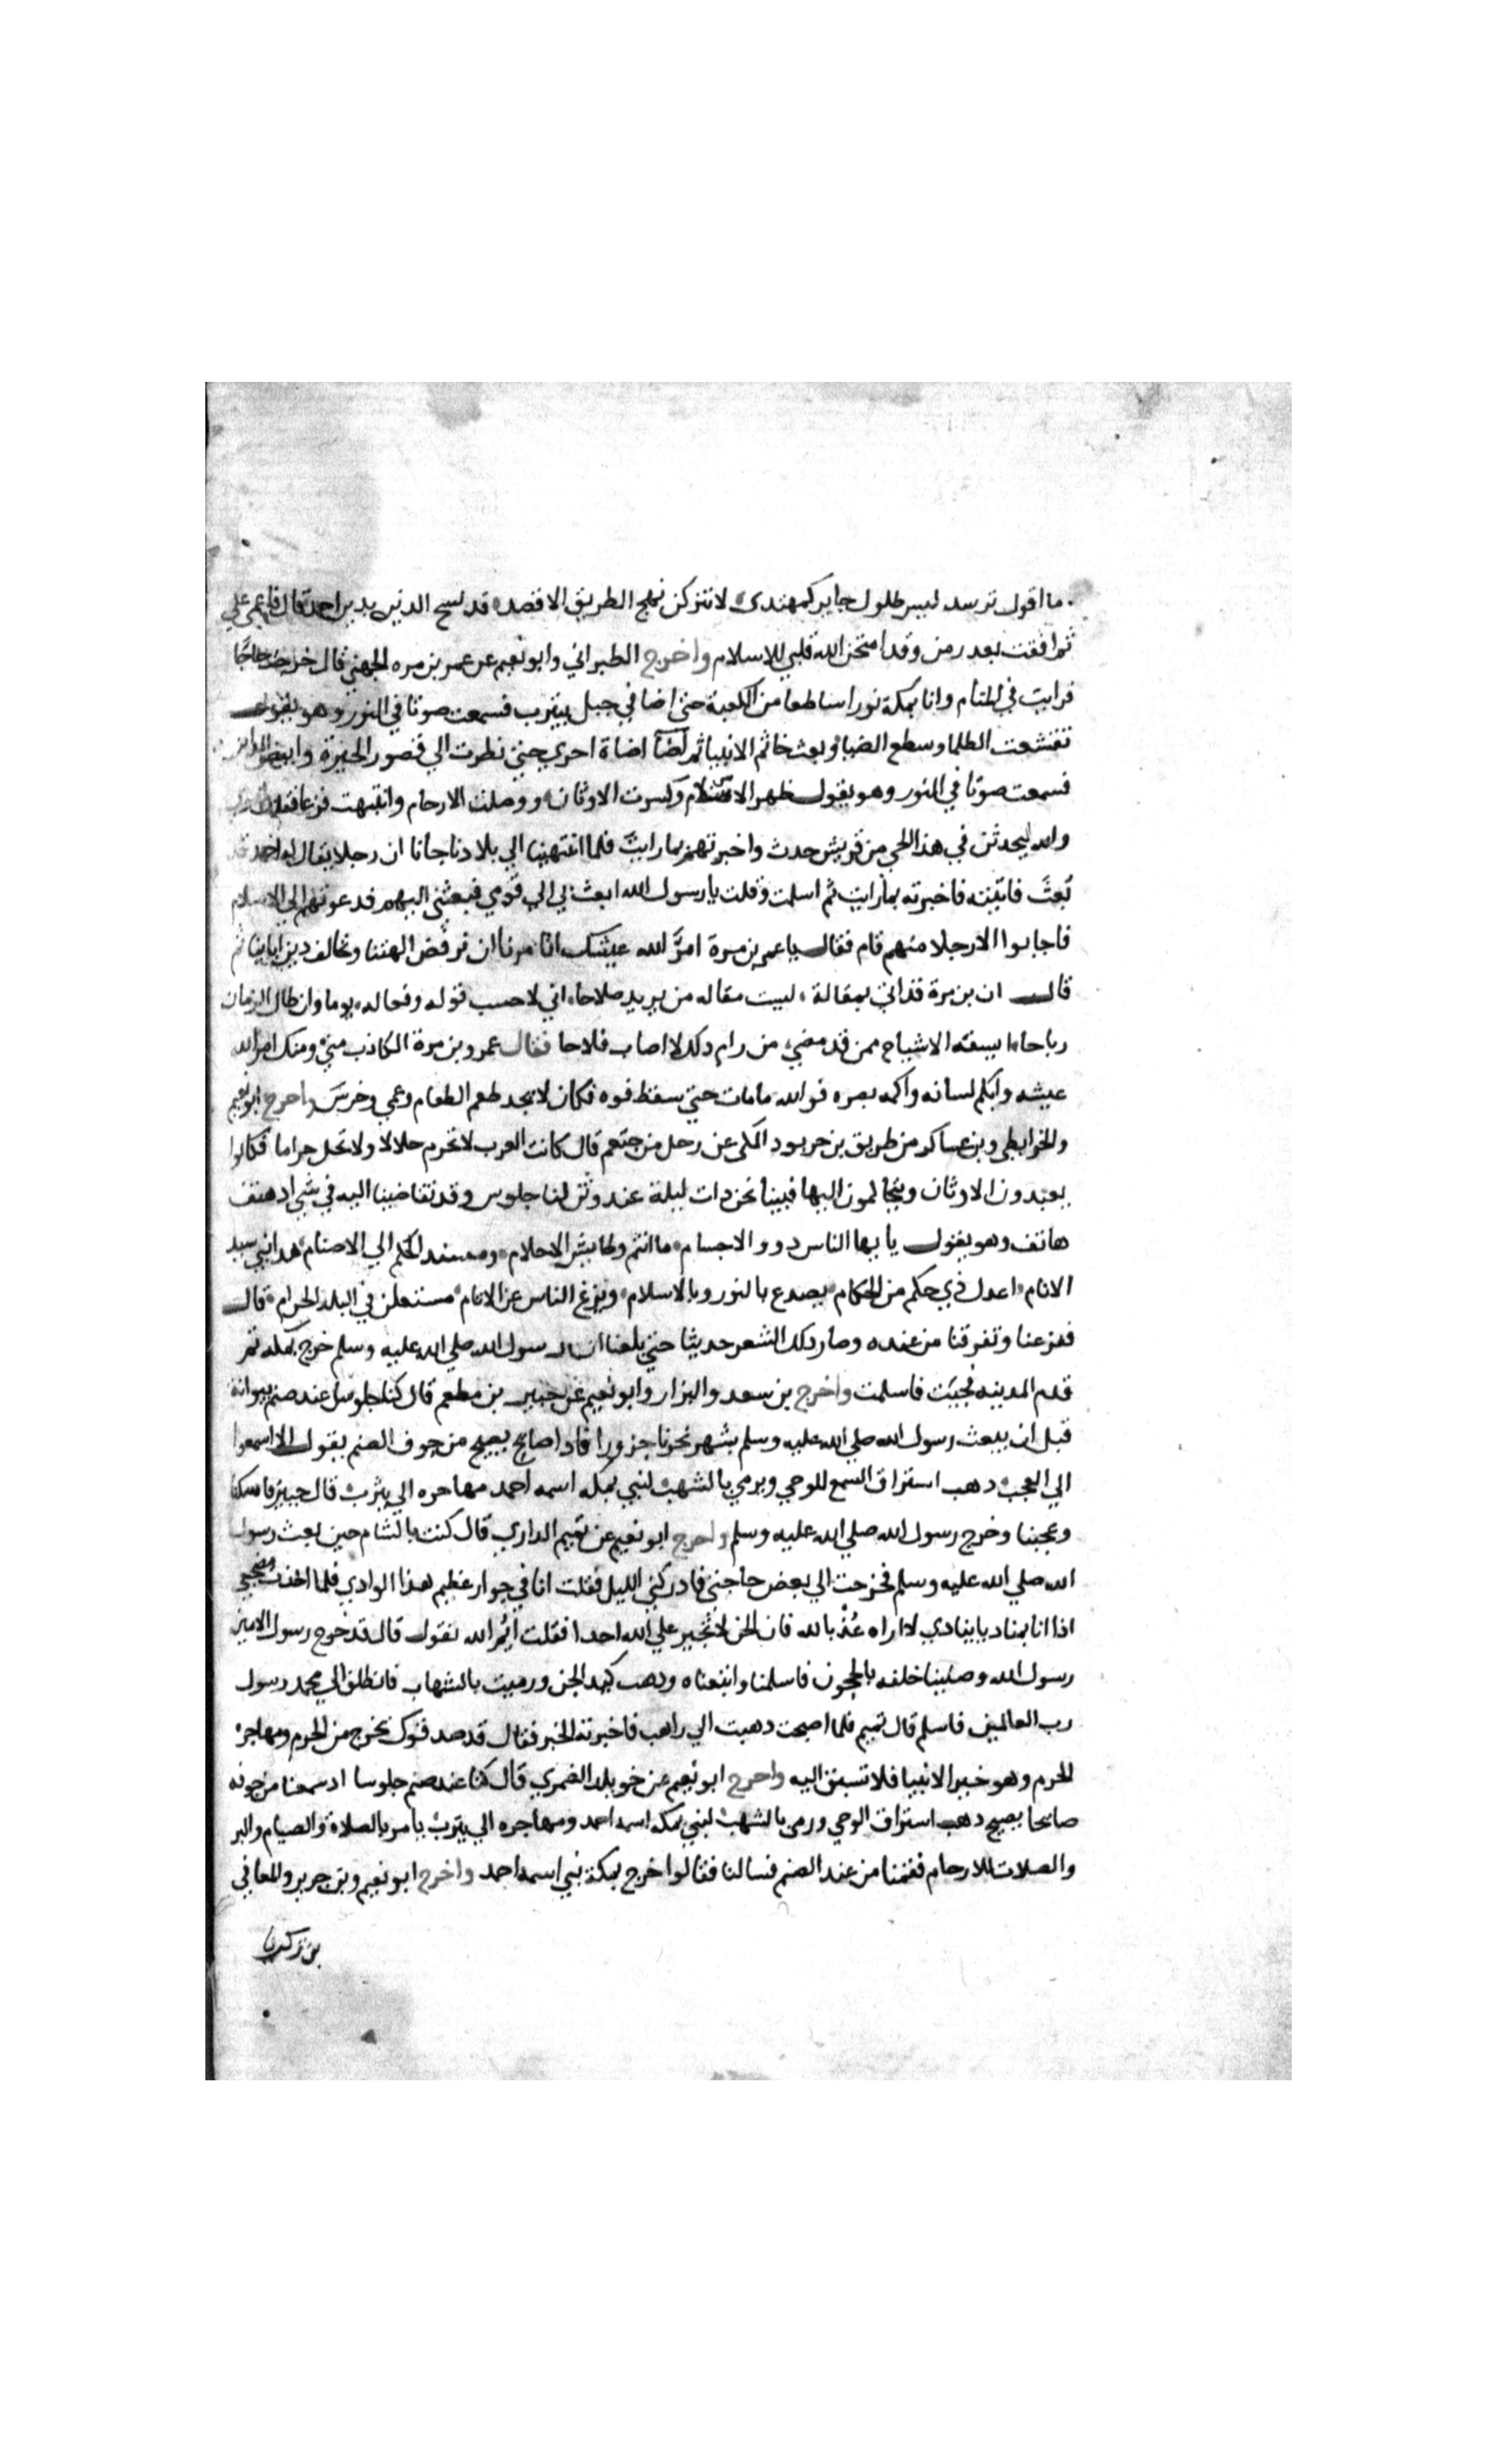 ما اقول ترسد ليس طلول جاير كمهتدى لا تتركن نهج الطريق الاقصد قد نسخ الدين بدين احمد قال فاغمي علي
ثم افقت بعد زمن وقد امتحن الله قلبي للاسلام واخرج الطبراني وابو نعيم عن عمر بن مره الجهني قال خرجت حاجا
فرايت في المنام وانا بمكة نورا ساطعا من الكعبة حتى اضا في جبل يثرب فسمعت صوتا في النور وهو يقول
تقشعت الظلما وسطع الضيا وبعث خاتم الانبيا ثم اضا اضاة اخري حتي نظرت الي قصور الحيرة وابيض المداين
فسمعت صوتا في النور وهو يقول ظهر الاسلام وكسرت الاوثان ووصلت الارحام وانتبهت فزعا فقلت
والله ليحدثن في هذا الحي من قريش حدث واخبرتهم بما رايت فلما انتهينا الي بلادنا جانا ان رجلا يقال له احمد قد
بعث فاتيته فاخبرته بما رايت ثم اسلمت وقلت يا رسول الله ابعث بي الي قومي فبعثني اليهم فدعوتهم الى الاسلام
فاجابوا الا رجلا منهم قام فقال يا عمر بن مرة امر الله عيشك اتامرنا ان نرفض الهتنا ونخالف دين ابائنا ثم
قال ان بن مرة قد اتى بمقالة ليست مقاله من يريد صلاحا اني لاحسب قوله وفعاله يوما وان طال الزمان
رباحا ايسفه الاشياخ ممن قد مضي من رام دلك لا اصاب فلاحا فقال عمرو بن مرة الكاذب مني ومنك امر الله
عيشه وابكم لسانه واكمه بصره فوالله ما مات حتي سقط فوه فكان لا يجد طعم الطعام وعمي وخرس واخرج ابو نعيم
والخرايطي وبن عساكر من طريق بن خربود المكى عن رجل من خثعم قال كانت العرب لا تحرم حلالا ولا تحل حراما فكانوا
يعبدون الاوثان ويتحاكمون اليها فبينا نحن دات ليلة عند وثن لنا جلوس وقد تقاضينا اليه في شي اد هتف
هاتف وهو يقول يا ايها الناس دوو الاجسام ما انتم وطايش الاحلام ومسند الحكم الي الاصنام هدا نبي سيد
الانام اعدل ذي حكم من الحكام يصدع بالنور وبالاسلام ويزع الناس عن الاثام مستعلن في البلد الحرام قال
ففزعنا وتفرقنا من عنده وصار دلك الشعر حديثا حتي بلغنا ان رسول الله صلي الله عليه وسلم خرج بمكه ثم
قدم المدينه فجيت فاسلمت واخرج بن سعد والبزار وابو نعيم عن جبير بن مطعم قال كنا جلوسا عند صنم ببوانة
قبل ان يبعث رسول الله صلي الله عليه وسلم بشهر نحرنا جزورا فاد اصايح يصيح من جوف الصنم يقول الا اسمعوا
الي العجب دهب استراق السمع للوحي ويرمي بالشهب لنبي بمكه اسمه احمد مهاجره الي يثرب قال جبير فامسكنا
وعجبنا وخرج رسول الله صلي الله عليه وسلم واخرج ابو نعيم عن تميم الداري قال كنت بالشام حين بعث رسول
الله صلي الله عليه وسلم فخرجت الي بعض حاجتي فادركني الليل فقلت انا في جوار عظيم هذا الوادي فلما اخذت مضجعي
اذا انا بمناد ينادي لا اراه عذ بالله فان الجن لا تجير علي الله احدا فقلت ايم الله تقول قال قد خرج رسول الاميين
رسول الله وصلينا خلفه بالحجون فاسلمنا واتبعناه ودهب كيد الجن ورميت بالشهاب فانطلق الي محمد رسول
رب العالمين فاسلم قال تميم فلما اصبحت دهبت الي راهب فاخبرته الخبر فقال قد صدقوك يخرج من الحرم ومهاجره
الحرم وهو خير الانبيا فلا تسبق اليه واخرج ابو نعيم عن خويلد الضمري قال كنا عند صنم جلوسا اد سمعنا من جوفه
صايحا يصيح دهب استراق الوحي ورمى بالشهب لنبي بمكه اسمه احمد ومهاجره الي يثرب يامر بالصلاة والصيام والبر
والصلات للارحام فقمنا من عند الصنم فسالنا فقالوا خرج بمكة نبي اسمه احمد واخرج ابو نعيم وبن جرير والمعافي
بن زكريا